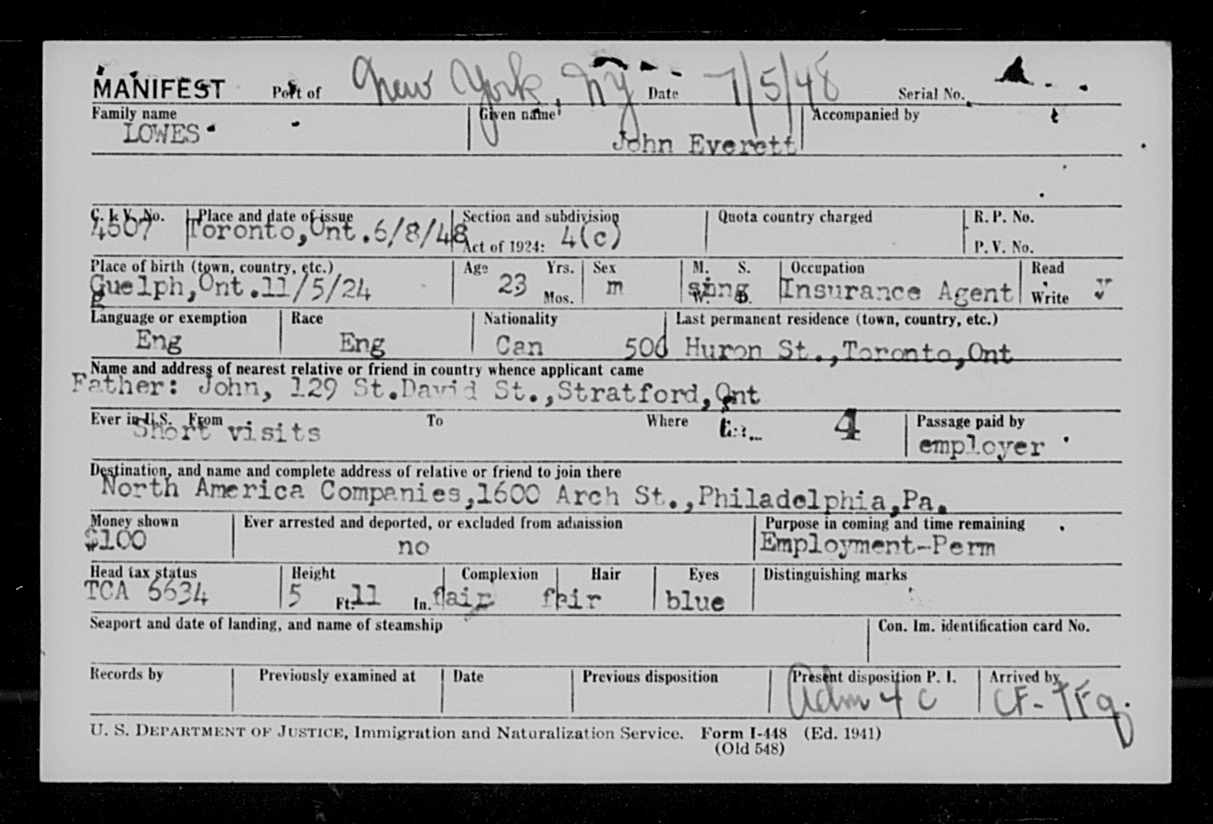 MANIFEST Port of New York, NY Date 7/5/48 Serial No.
Family name Given name Accompanied by
LOWES John Everett
C. I. V. No. Place and date of issue Section and subdivision Quota country charged R. P. No.
4507 Toronto,Ont.6/8/48 Act of 1924: 4(c) P. V. No.
Place of birth (town, country, etc.) Age Yrs. Sex M. S. Occupation Read
Guelph,Ont.11/5/24 23 Mos. m W. D. sing Insurance Agent Write
Language or exemption Race Nationality Last permanent residence (town, country, etc.)
Eng Eng Can 500 Huron St.,Toronto,Ont
Name and address of nearest relative or friend in country whence applicant came
Father: John, 129 St.David St.,Stratford,Ont
Ever in U.S. From To Where 4 Passage paid by
Short visits employer
Destination, and name and complete address of relative or friend to join there
North America Companies,1600 Arch St.,Philadelphia,Pa.
Money shown Ever arrested and deported, or excluded from admission Purpose in coming and time remaining
$100 no Employment-Perm
Head tax status Height Complexion Hair Eyes Distinguishing marks
TCA 6634 5 Ft. 11 In. fair fair blue
Seaport and date of landing, and name of steamship Con. Im. identification card No.
Records by Previously examined at Date Previous disposition Present disposition P. I. Arrived by
Adm 4 C
U. S. DEPARTMENT OF JUSTICE, Immigration and Naturalization Service. Form I-448 (Ed. 1941)
(Old 548)